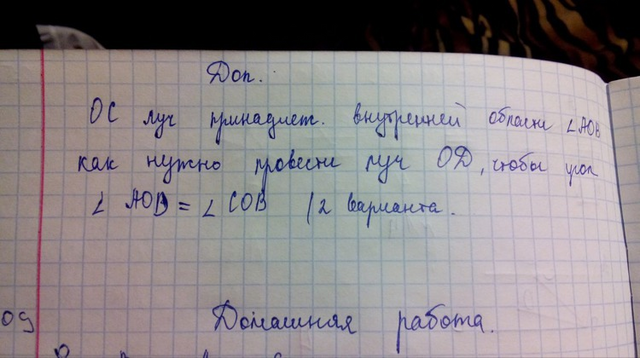 Доп.
ОС луч принадлеж. внутренней области ∠AOB
как нужно провести луч OD, чтобы угол
∠ AOD = ∠ COB /2 варианта.
09 Домашняя работа.